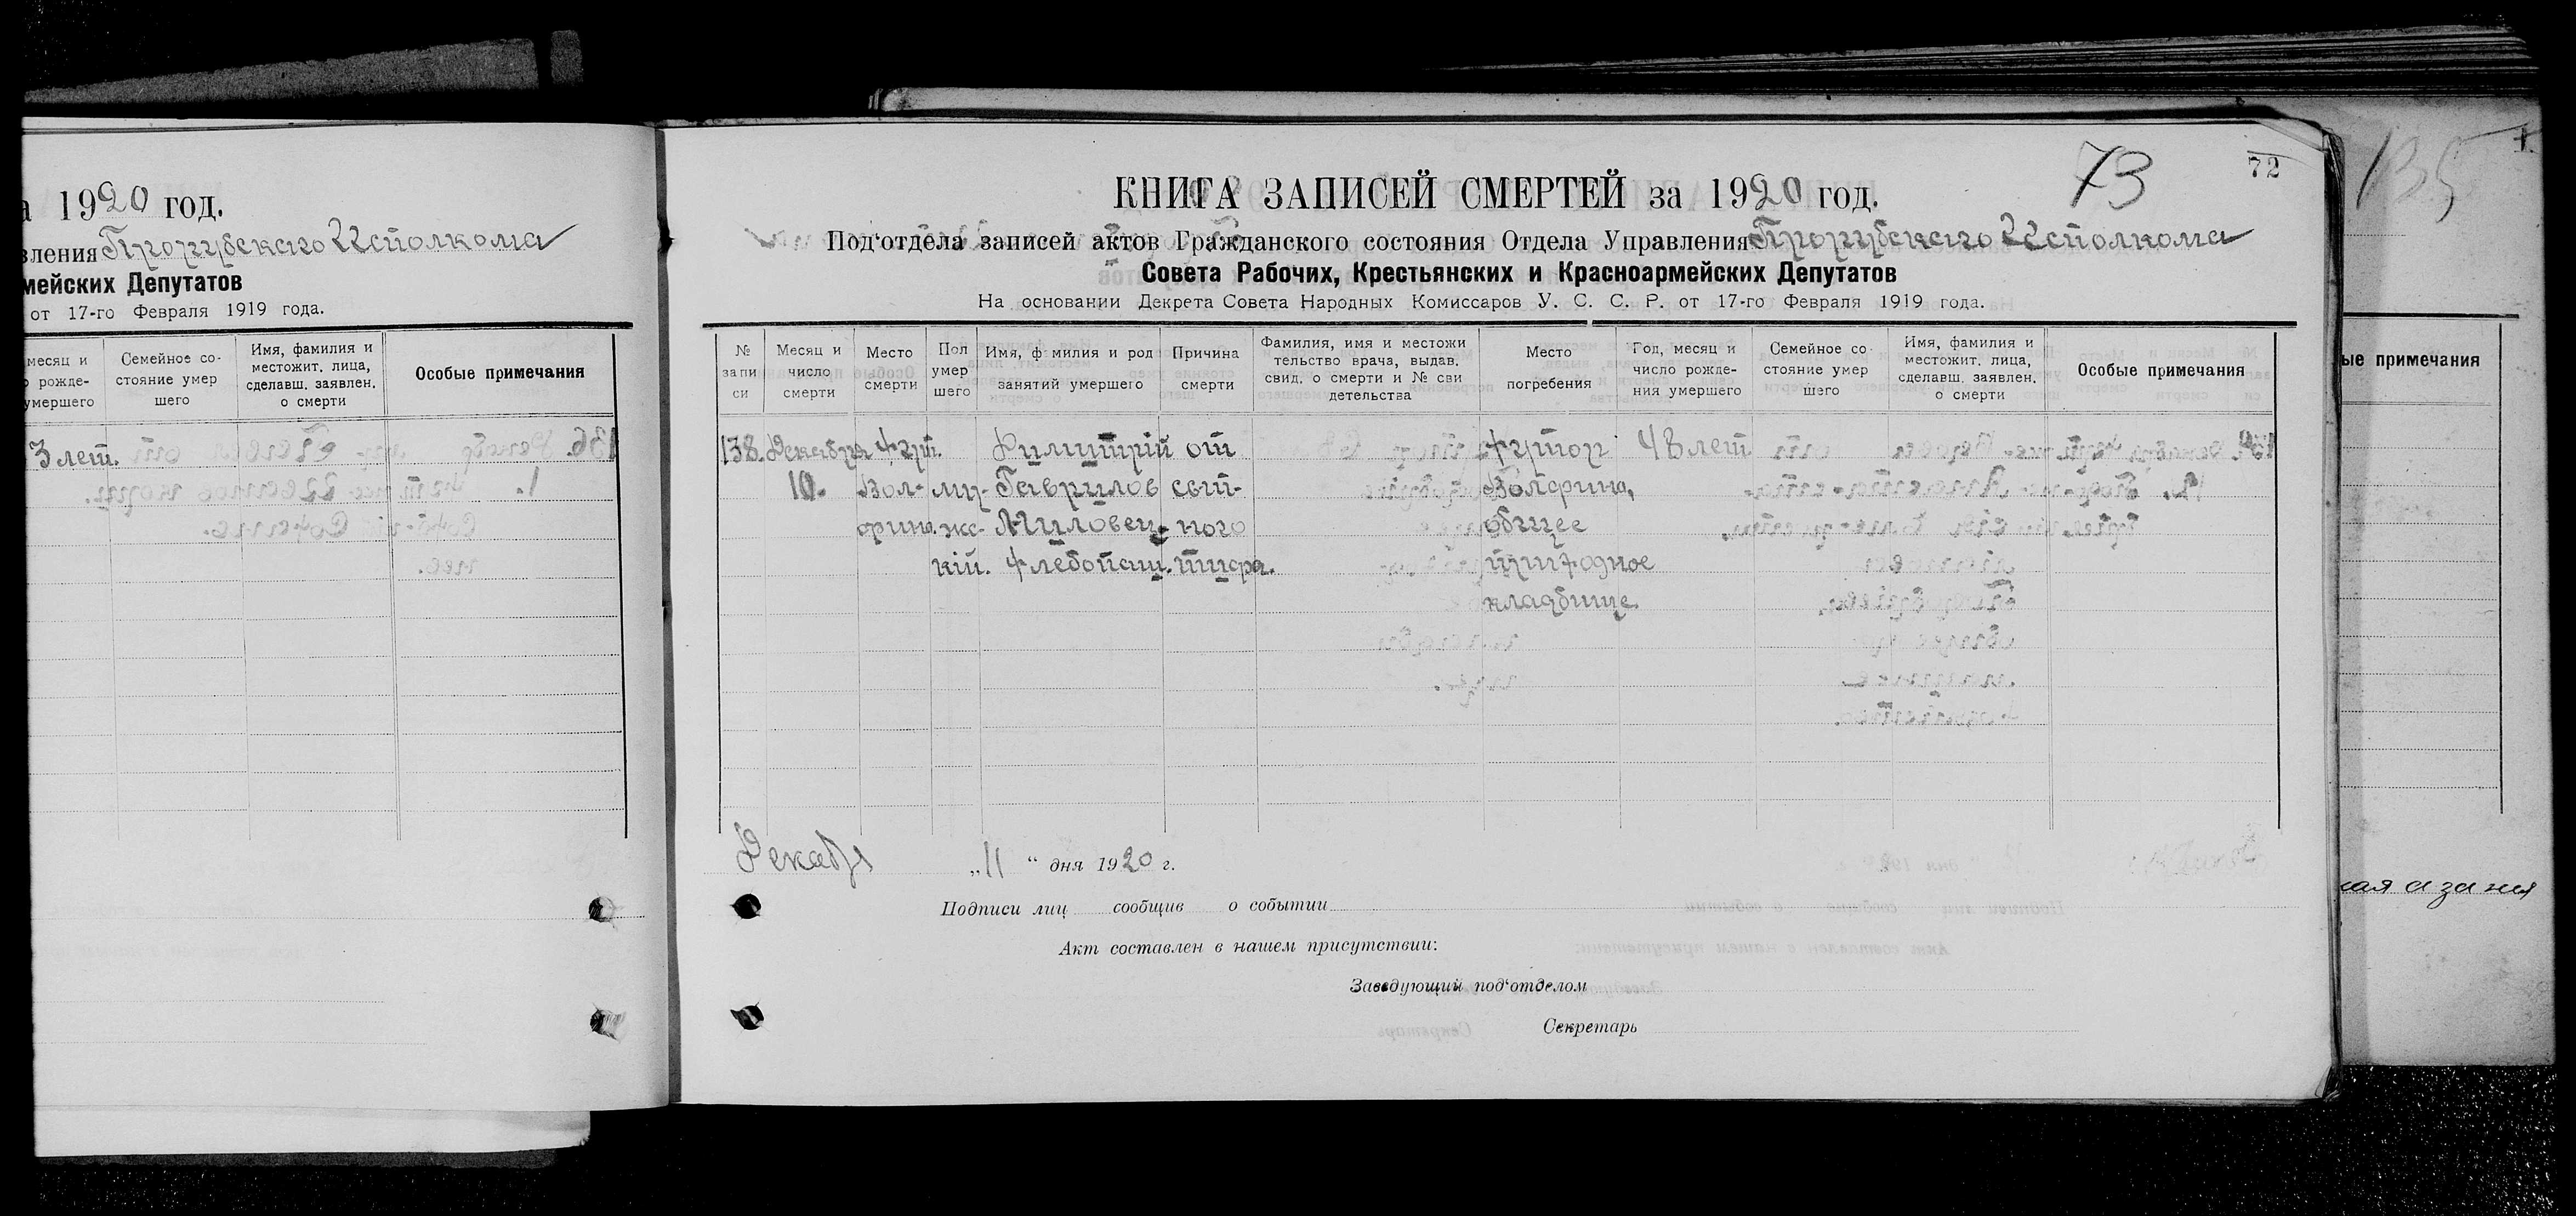 а 1920 год.
вления Прорубского Исполкома
мейских Депутатов
от 17-го Февраля 1919 года.
месяц и
о рожде-
умершего
Семейное со-
стояние умер
шего
Имя, фамилия и
местожит. лица,
сделавш. заявлен.
о смерти
Особые примечания
3 лет.
73
72
КНИГА ЗАПИСЕЙ СМЕРТЕЙ за 1920 год.
Под‘отдела записей актов Гражданского состояния Отдела Управления Прорубского Исполкома
Совета Рабочих, Крестьянских и Красноармейских Депутатов
На основании Декрета Совета Народных Комиссаров У. С. С. Р. от 17-го Февраля 1919 года.
№
запи
си
Месяц и
число
смерти
Место
смерти
Пол
умер
шего
Имя, ф милия и род
занятий умершего
Причина
смерти
Фамилия, имя и местожи
тельство врача, выдав.
свид. о смерти и № сви
детельства
Место
погребения
Год, месяц и
число рожде-
ния умершего
Семейное со
стояние умер
шего
Имя, фамилия и
местожит. лица,
сделавш. заявлен.
о смерти
Особые примечания
138.
Декабря
10.
хут.
Вол-
му-
жс-
кій.
Гаврилов
хлебопаш.
от
сып-
ного
тифа.
хутор
общее
приходное
кладбище.
48 лет
Декабря „11“ дня 1920 г.
Подписи лиц сообщив о событии
Акт составлен в нашем присутствии:
Заведующий под‘отделом
Секретарь
135
ые примечания